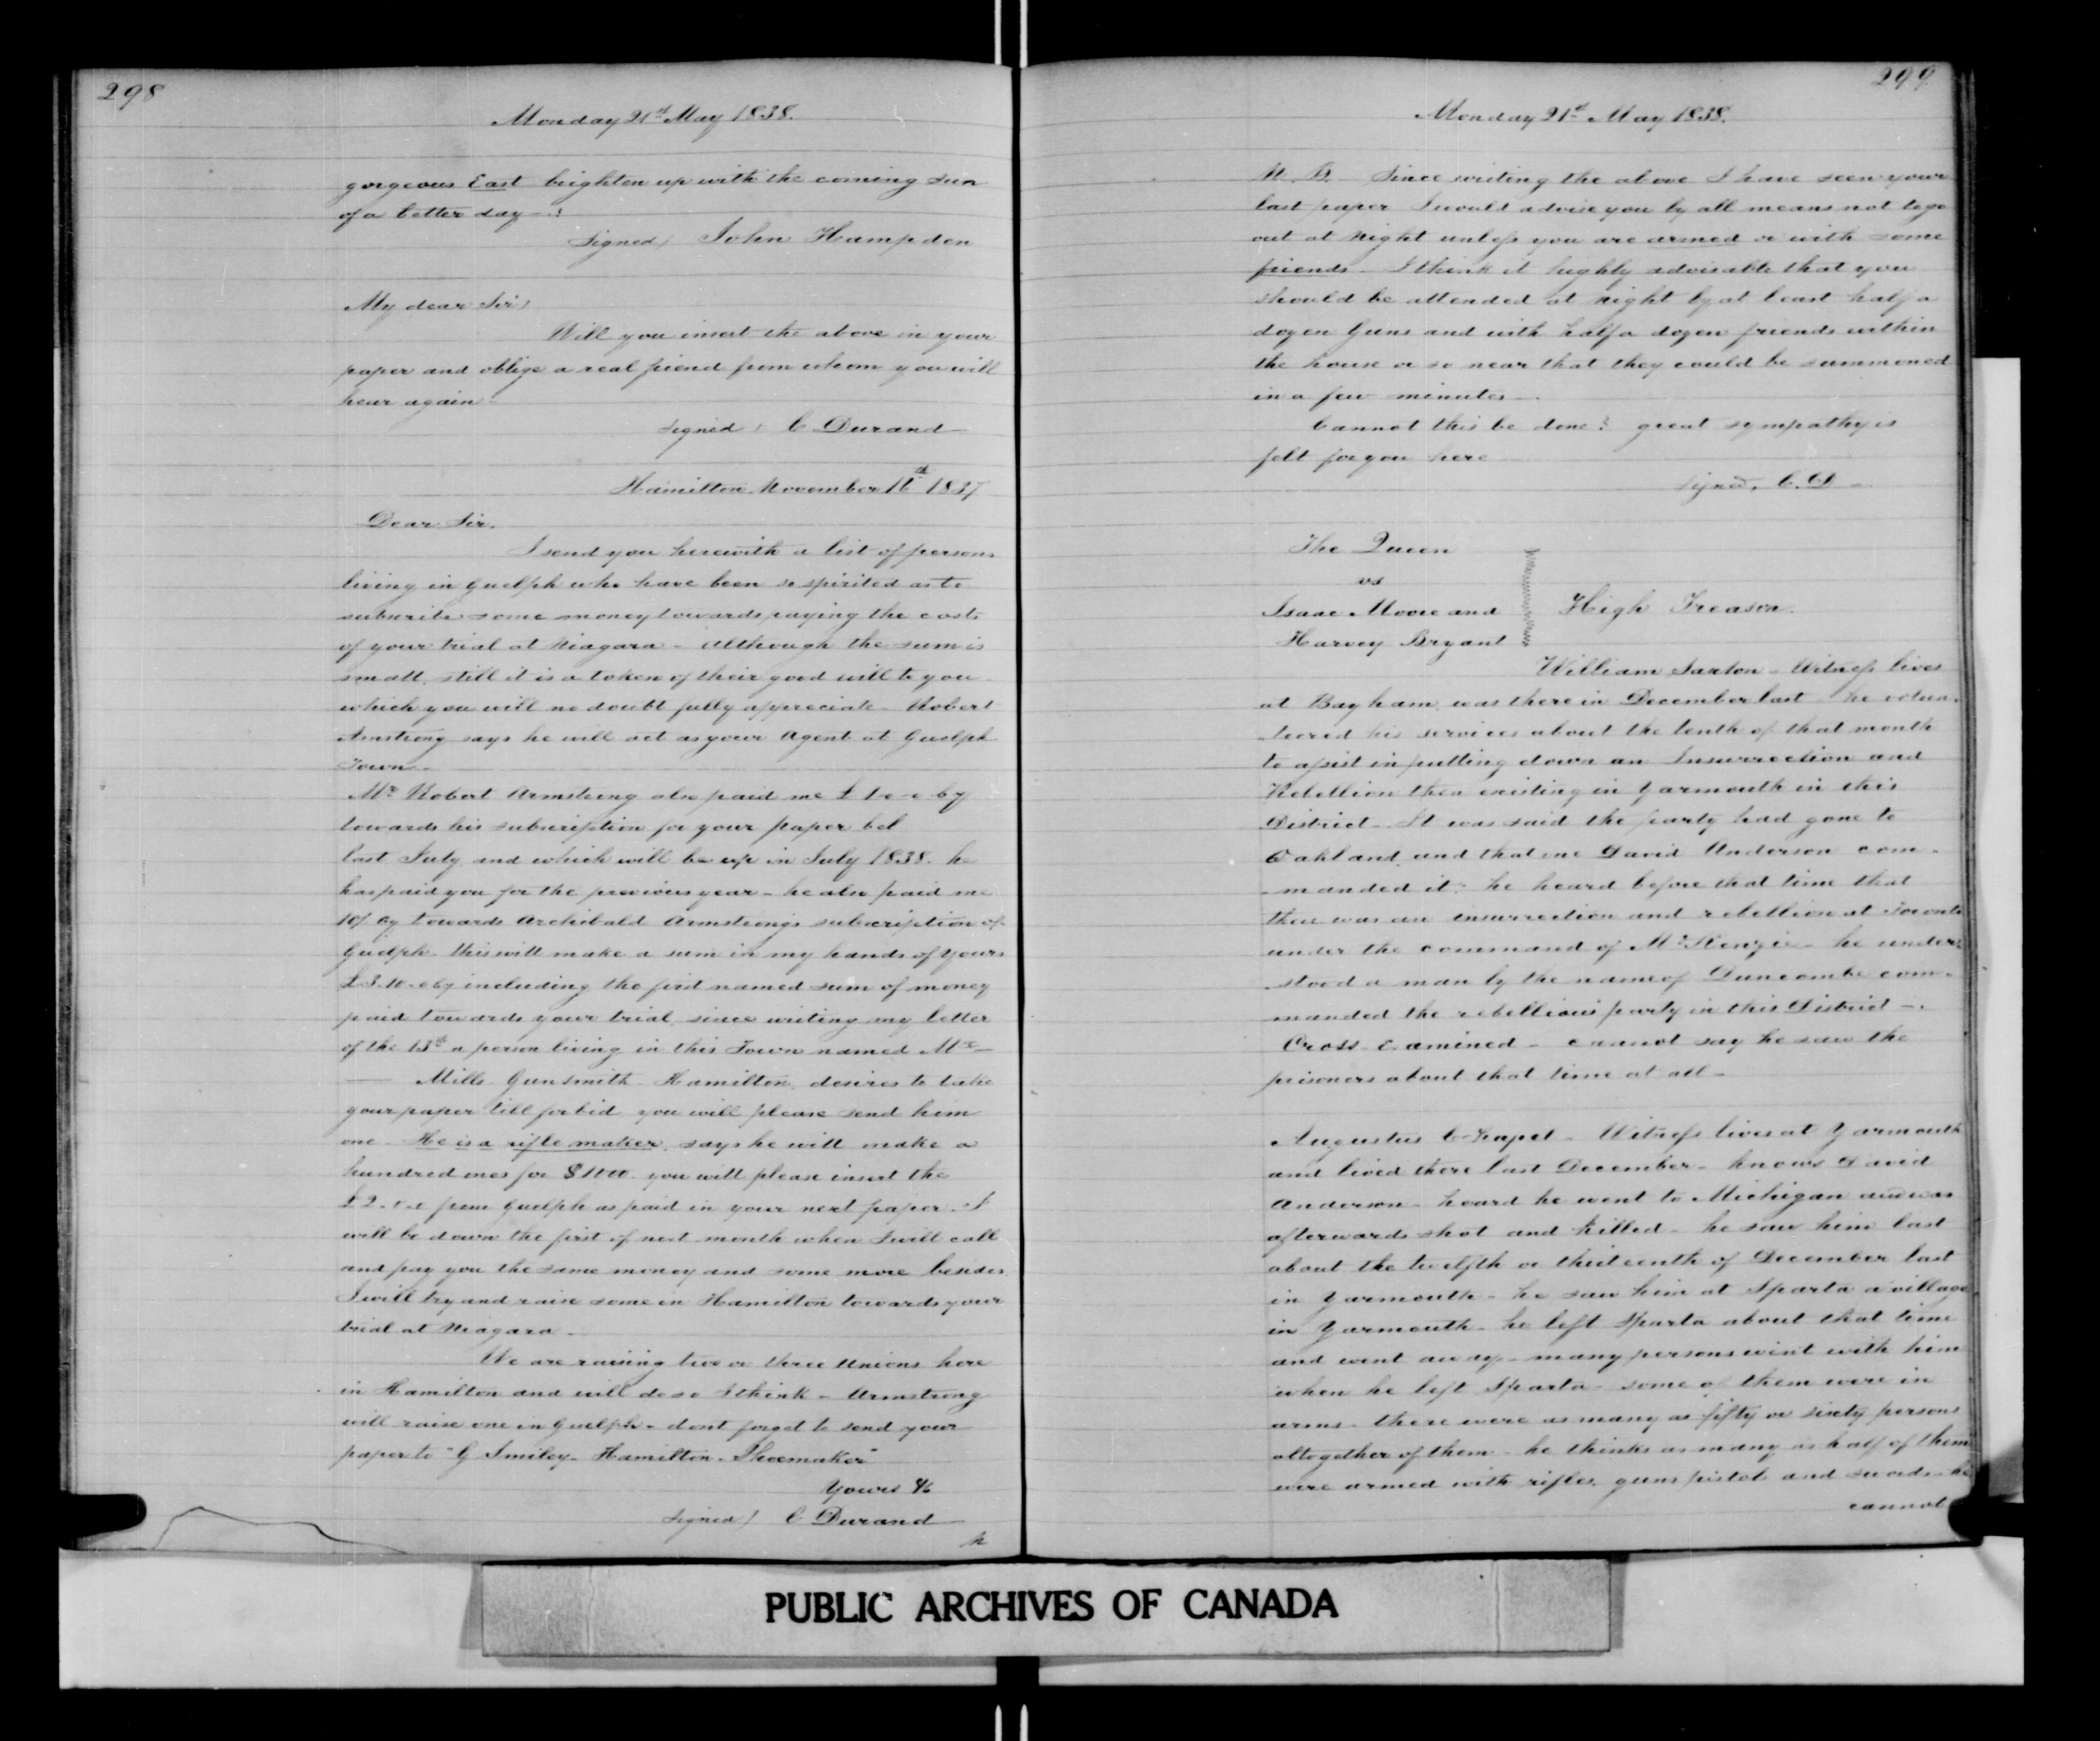 298
Monday 21st May 1838.
gorgeous East brighten up with the coming sun
of a better day -!
Signed / John Hampden
My dear Sir,
Will you insert the above in your
paper and oblige a real friend from whom you will
hear again -
Signed / C Durand -
Hamilton November 16th 1837
Dear Sir.
I send you herewith a list of persons
living in Guelph who have been so spirited as to
subscribe some money towards paying the costs
of your trial at Niagara - Although the sum is
small, still it is a token of their good will to you
which you will no doubt fully appreciate - Robert
Armstrong says he will act as your Agent at Guelph
Town -
Mr Robert Armstrong also paid me £ 1-0-0 by
towards his subscription for your paper bel
last July and which will be up in July 1838. he
has paid you for the previous year - he also paid me
10/. Cy towards Archibald Armstrong's subscription of
Guelph. this will make a sum in my hands of yours
£3.10.0 Cy including the first named sum of money
paid towards your trial, since writing my letter
of the 13th a person living in this Town named Mr -
— Mills Gunsmith Hamilton, desires to take
your paper till forbid you will please send him
one - He is a rifle maker, says he will make a
hundred ones for $1000. you will please insert the
£2.0.0 from Guelph as paid in your next paper. I
will be down the first of next month when I will call
and pay you the same money and some more besides
I will try and raise some in Hamilton towards your
trial at Niagara -
We are raising two or three Unions here
in Hamilton and will do so I think - Armstrong
will raise one in Guelph - dont forget to send your
paper to "G Smiley - Hamilton - Shoemaker"
Yours &c
Signed / C Durand -
N
299
Monday 21st May 1838.
N. B. Since writing the above I have seen your
last paper I would advise you by all means not to go
out at Night unless you are armed or with some
friends - I think it highly advisable that you
should be attended at Night by at least half a
dozen Guns and with half a dozen friends within
the house or so near that they could be summoned
in a few minutes -.
Cannot this be done? great sympathy is
felt for you here
Signed, C. D -
The Queen
vs
Isaac Moore and
Harvey Bryant
High Treason.
William Saxton - Witness lives
at Bayham, was there in December last he volun-
-teered his services about the tenth of that month
to assist in putting down an Insurrection and
Rebellion then existing in Yarmouth in this
District - It was said the party had gone to
Oakland, and that one David Anderson com-
-manded it - he heard before that time that
there was an insurrection and rebellion at Toronto
under the command of McKenzie - he under-
-stood a man by the name of Duncombe com-
-manded the rebellious party in this District -.
Cross Examined - cannot say he saw the
prisoners about that time at all -
Augustus Chapel - Witness lives at Yarmouth
and lived there last December - knows David
Anderson - heard he went to Michigan and was
afterwards shot and killed - he saw him last
about the twelfth or thirteenth of December last
in Yarmouth - he saw him at Sparta a village
in Yarmouth - he left Sparta about that time
and went away - many persons went with him
when he left Sparta - some of them were in
arms - there were as many as fifty or sixty persons
altogether of them - he thinks as many as half of them
were armed with rifles, guns pistols and swords - he
cannot
PUBLIC ARCHIVES OF CANADA